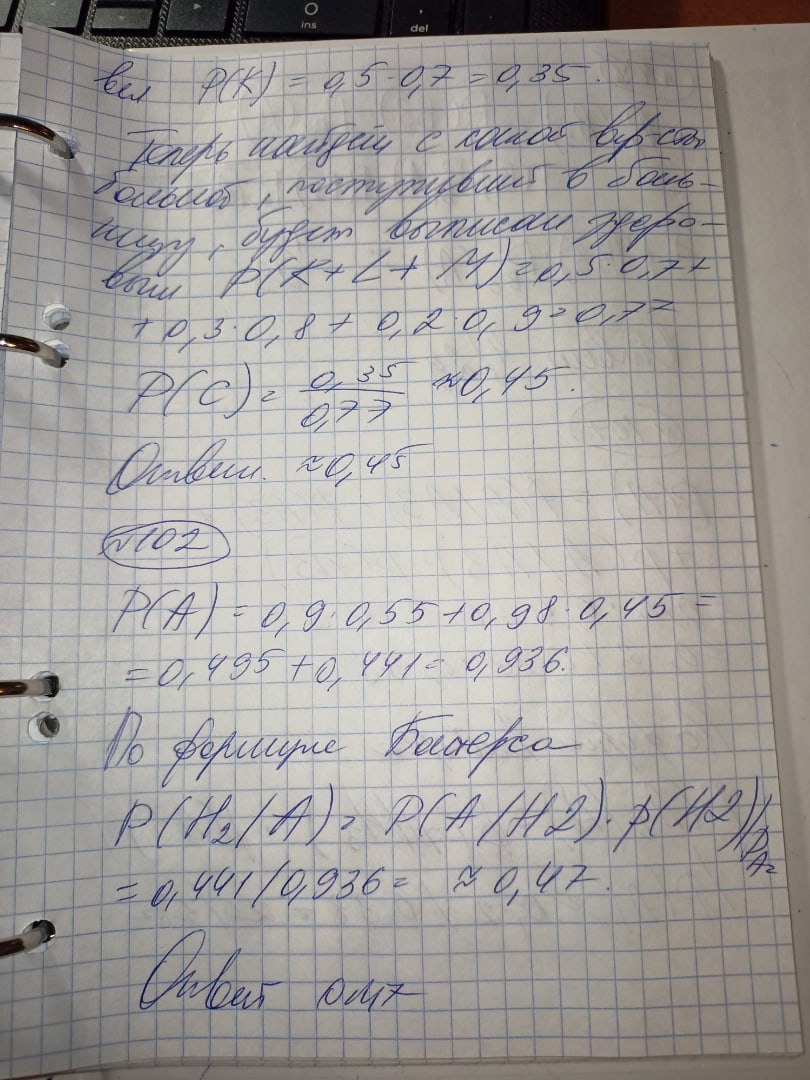 ins
del
вел P(K) = 0,5·0,7 = 0,35.
Теперь найдем с какой вер-стью
больной, поступивший в боль-
ницу, будет выписан здоро-
вым P(K+L+M) = 0,5·0,7+
+0,3·0,8+ 0,2·0,9=0,77
P(C) = 0,35/0,77 ≈0,45.
Ответ. ≈0,45
№102
P(A) = 0,9·0,55+0,98·0,45 =
= 0,495+0,441= 0,936.
По формуле Байерса
P(H2/A)= P(A/H2)·p(H2)/PA=
= 0,441/0,936= ≈0,47.
Ответ 0,47